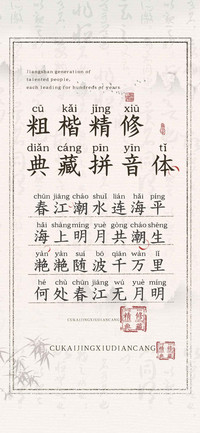 liangshan generation of
talented people,
each leading for hundreds of years
cū kǎi jīng xiū
粗楷精修
diǎn cáng pīn yīn tǐ
典藏拼音体
chūn jiāng cháo shuǐ lián hǎi píng
春江潮水连海平
hǎi shàng míng yuè gòng cháo shēng
海上明月共潮生
yàn yàn suí bō qiān wàn lǐ
滟滟随波千万里
hé chù chūn jiāng wú yuè míng
何处春江无月明
CUKAIJINGXIUDIANCANG
修藏
精典
CUKAIJINGXIUDIANCANG
修藏
精典